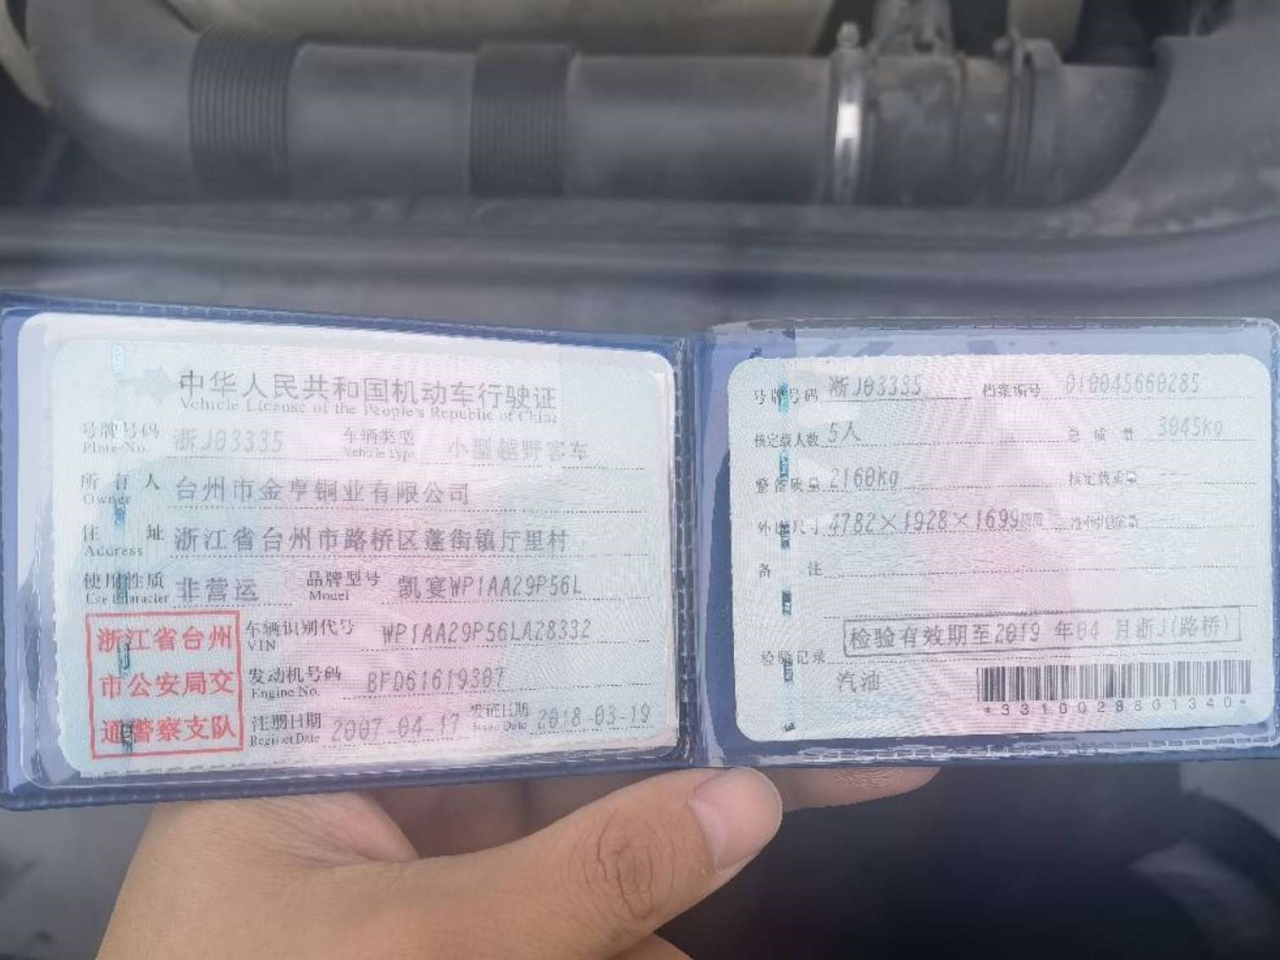 中华人民共和国机动车行驶证
Vehicle License of the People's Republic of China
号牌号码 浙J03335 车辆类型 小型越野客车
Plate No. Vehicle Type
所有人 台州市金亨铜业有限公司
Owner
住址 浙江省台州市路桥区蓬街镇厅里村
Address
使用性质 非营运 品牌型号 凯宴WP1AA29P56L
Use Character Model
浙江省台州
市公安局交
通警察支队
车辆识别代号 WP1AA29P56LA28332
VIN
发动机号码 BFD61619307
Engine No.
注册日期 2007-04-17 发证日期 2018-03-19
Register Date Issue Date
号牌号码 浙J03335 档案编号 010045660285
核定载人数 5人 总质量 3045kg
整备质量 2160kg 核定载质量
外廓尺寸 4782×1928×1699
备注
检验有效期至2019年04月浙J(路桥)
检验记录
汽油
*3310029801340*